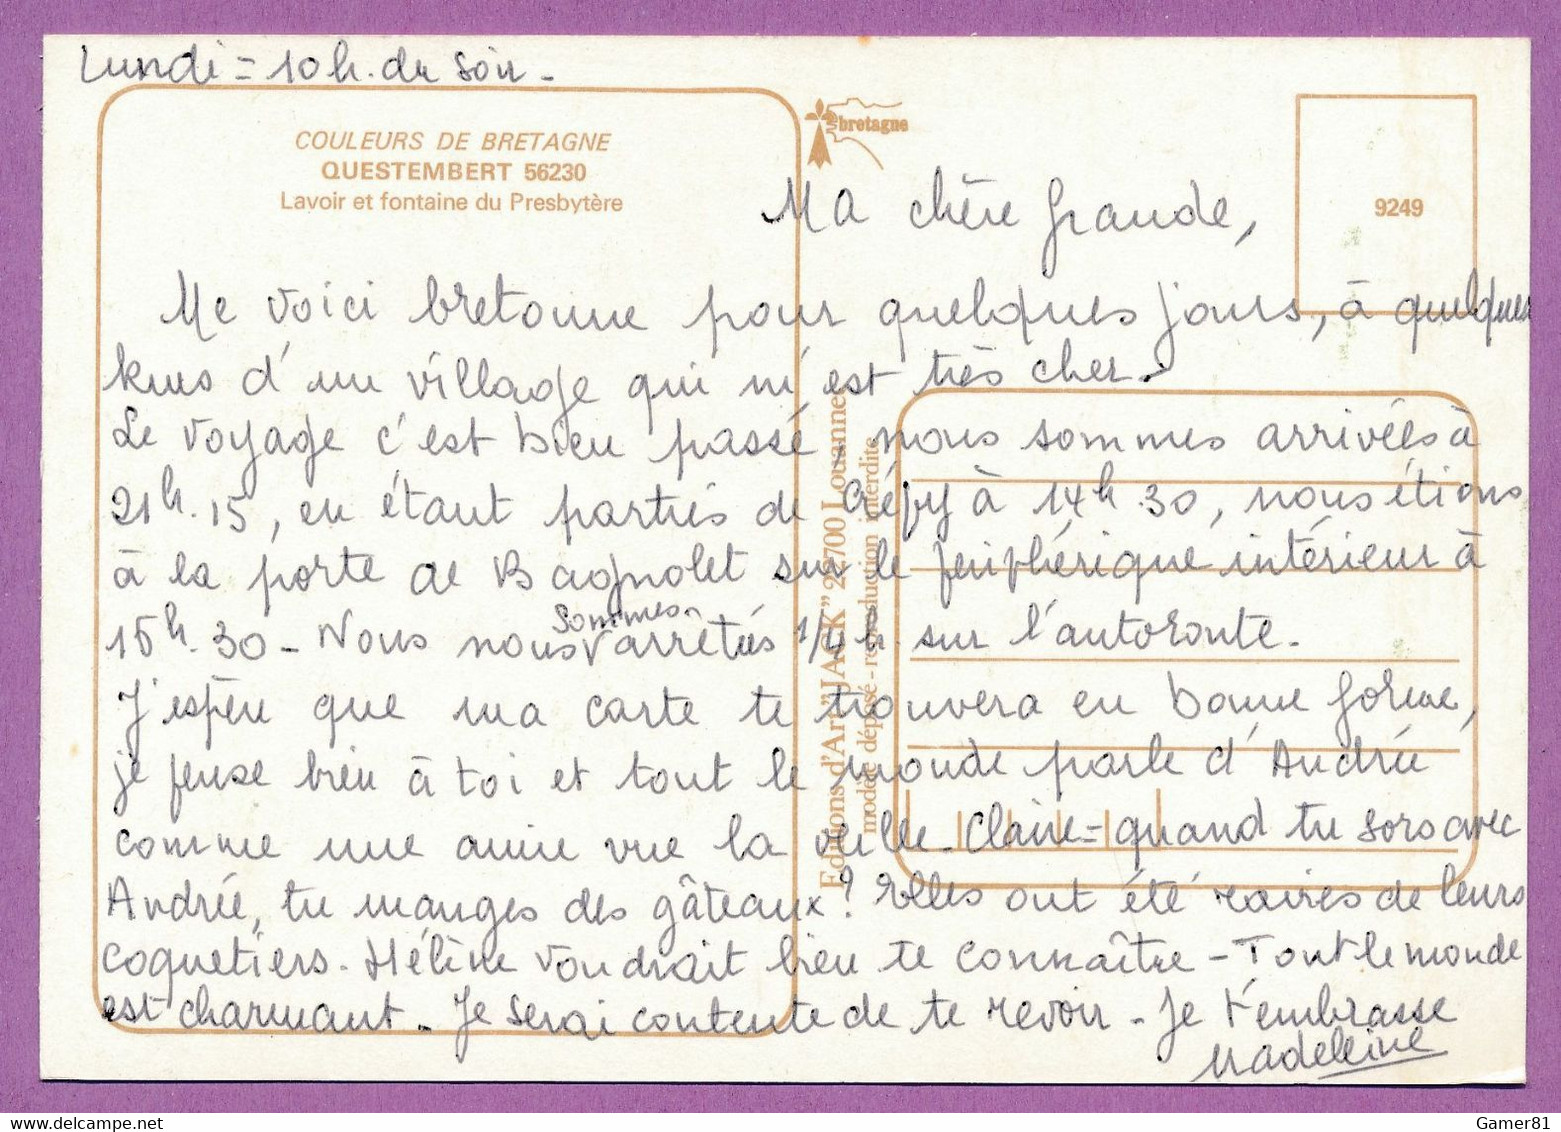 Lundi = 10h. du soir -
COULEURS DE BRETAGNE
QUESTEMBERT 56230
Lavoir et fontaine du Presbytère
bretagne
9249
Ma chère grande,
Me voici bretonne pour quelques jours, à quelques
kms d'un village qui m'est très cher.
Le voyage c'est bien passé, nous sommes arrivées à
21h.15, en étant parties de Crépy à 14h 30, nous étions
à la porte de Bagnolet sur le periphérique intérieur à
15h.30 - Nous nous sommes arrêtées 1/4 h. sur l'autoroute.
J'espère que ma carte te trouvera en bonne forme,
je pense bien à toi et tout le monde parle d'Andrée
comme une amie vue la veille. Claire = quand tu sors avec
Andrée, tu manges des gâteaux ? Elles ont été ravies de leurs
coquetiers. Hélène voudrait bien te connaître - Tout le monde
est charmant. Je serai contente de te revoir - Je t'embrasse
Madeleine
Editions d'Art "JACK" 22700 Louannec
modèle déposé - reproduction interdite
Gamer81